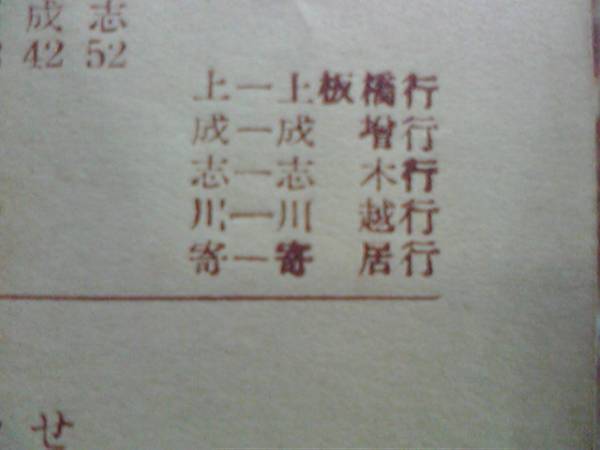 成 志
42 52
上―上板橋行
成―成 増行
志―志 木行
川―川 越行
寄―寄 居行
せ